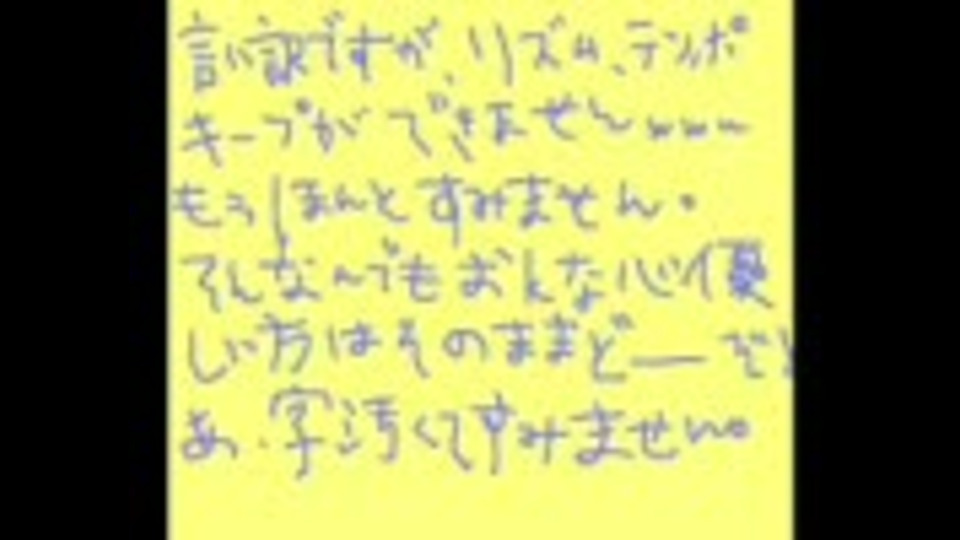 言い訳ですが、リズム、テンポ
キープができませんwww
もうほんとすみません。
そんなんでもおkな心優
しい方はそのままどーぞ!
あ、字汚くてすみません。